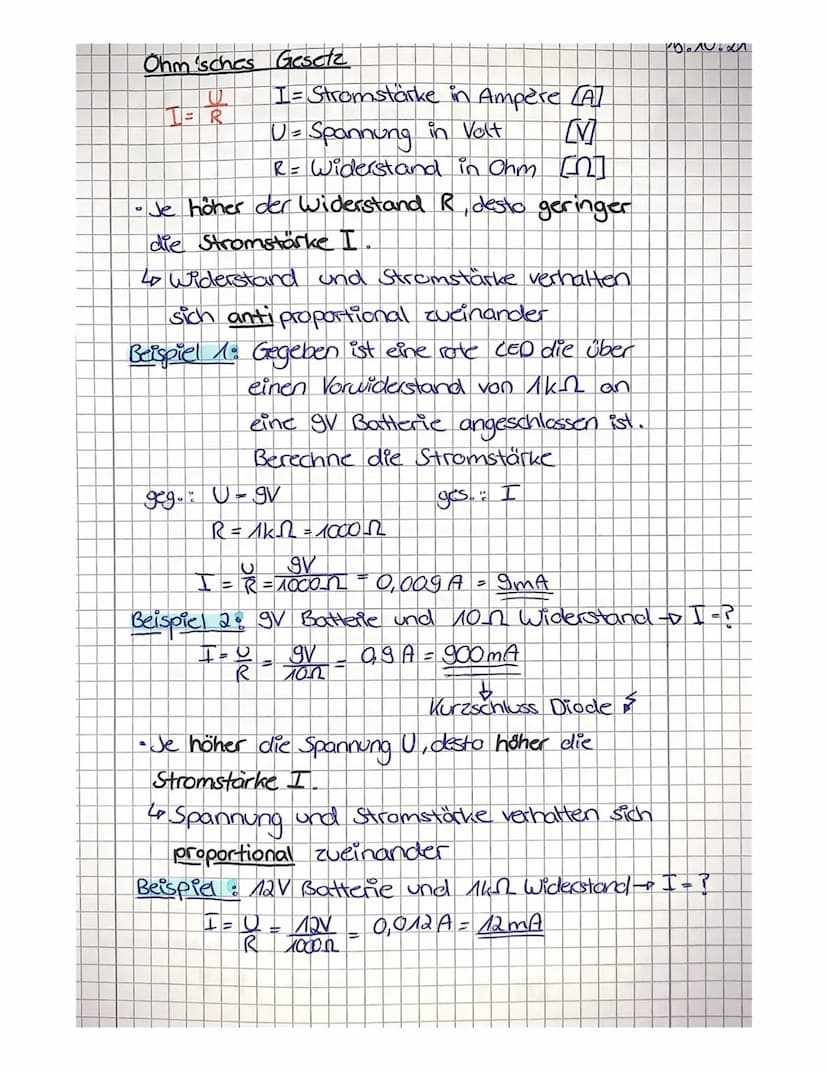 Ohm'sches Gesetz
I = U/R
I = Stromstärke in Ampère [A]
U = Spannung in Volt [V]
R = Widerstand in Ohm [Ω]
• Je höher der Widerstand R, desto geringer
die Stromstärke I.
↳ Widerstand und Stromstärke verhalten
sich antiproportional zueinander
Beispiel 1: Gegeben ist eine rote LED die über
einen Vorwiderstand von 1kΩ an
eine 9V Batterie angeschlossen ist.
Berechne die Stromstärke
geg.: U = 9V ges.: I
R = 1kΩ = 1000Ω
I = U/R = 9V/1000Ω = 0,009A = 9mA
Beispiel 2: 9V Batterie und 10Ω Widerstand → I = ?
I = U/R = 9V/10Ω = 0,9A = 900mA
↓
Kurzschluss Diode ⚡
• Je höher die Spannung U, desto höher die
Stromstärke I.
↳ Spannung und Stromstärke verhalten sich
proportional zueinander
Beispiel: 12V Batterie und 1kΩ Widerstand → I = ?
I = U/R = 12V/1000Ω = 0,012A = 12mA